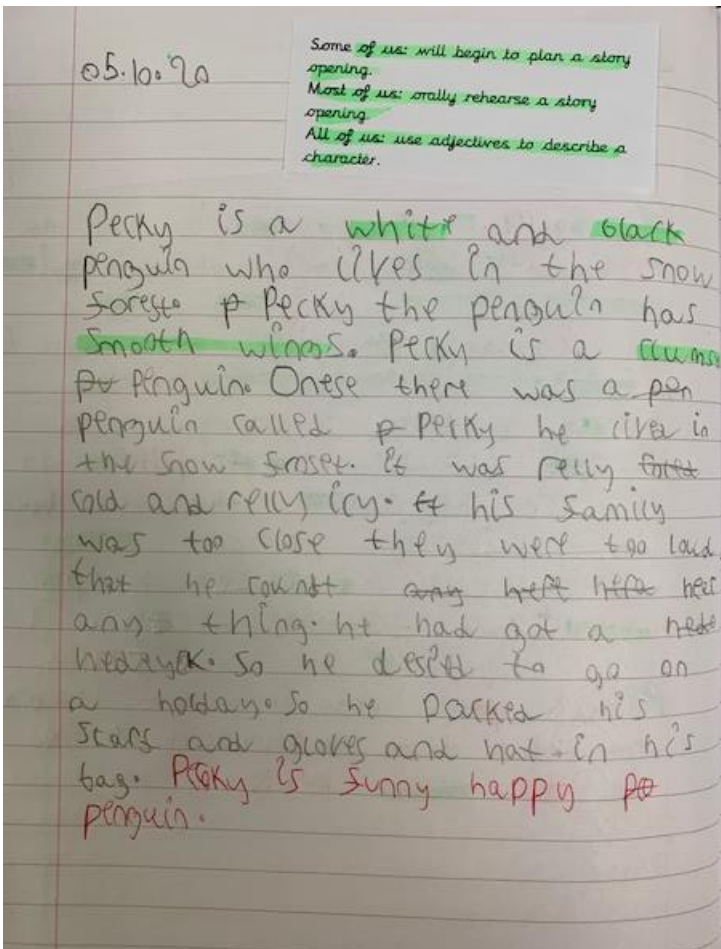 05.10.20
Some of us: will begin to plan a story
opening.
Most of us: orally rehearse a story
opening
All of us: use adjectives to describe a
character.
Pecky is a white and black
penguin who lives in the snow
forest. p Pecky the penguin has
smooth wings. Pecky is a clums
pe Penguin. Onese there was a pen
penguin called p Pecky he lives in
the snow froset. it was relly
cold and relly icy. his family
was too close they were too loud
that he coundt any
any thing. he had got a
hedayck. So he desied to go on
a holday. So he packed his
scarf and gloves and hat in his
bag. Pecky is funny happy pe
penguin.